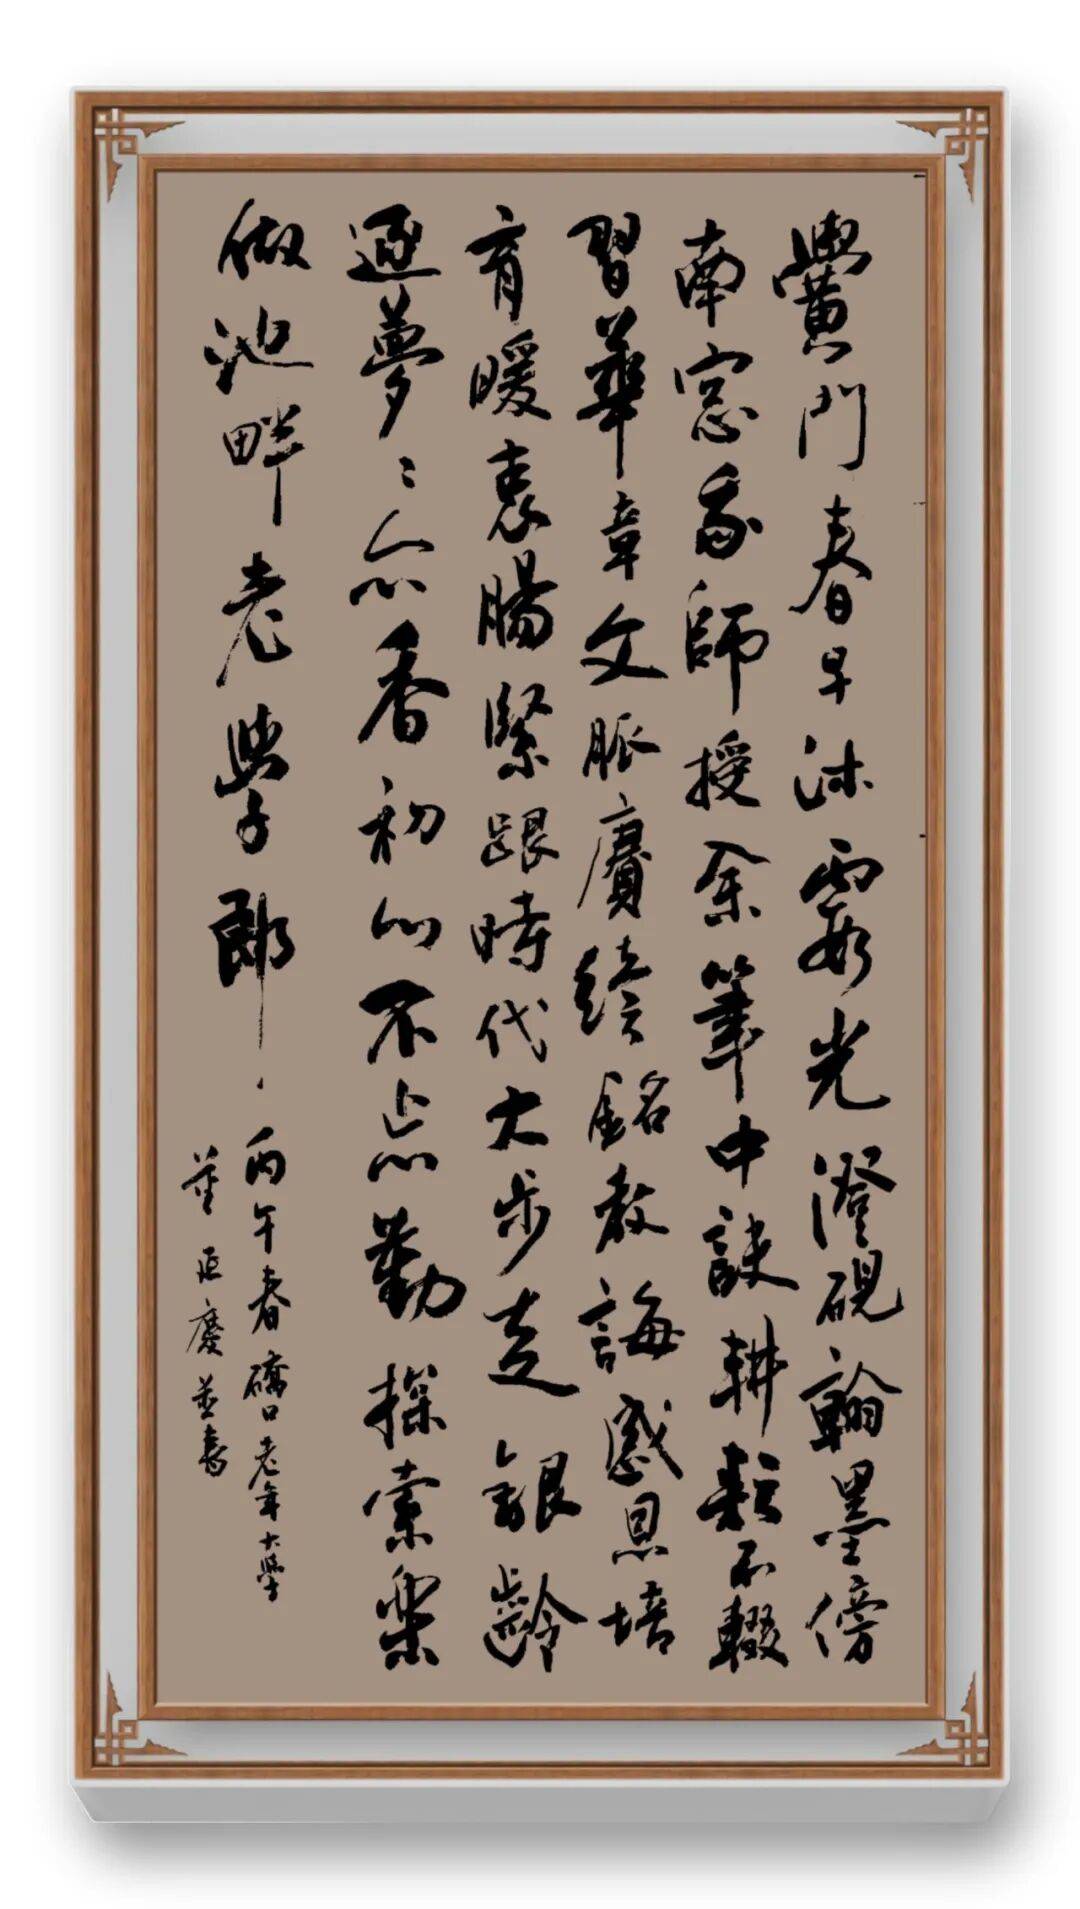 黌門春早沐霞光澄硯翰墨傍
南窓我師授余筆中訣耕耘不輟
習華章文脈賡續銘教誨感恩培
育暖衷腸緊跟時代大步走銀齡
逐夢〻香初心不忘勤探索樂
做池畔老學郎
丙午春礄口老年大學
董慶並書